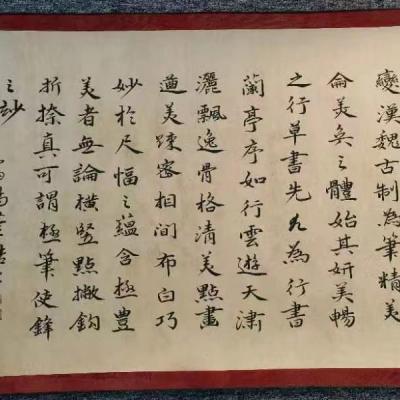 變漢魏古制為筆精美
侖美奐之體始其妍美暢
之行草書先尤為行書
蘭亭序如行雲遊天潚
灑飄逸骨格清美點畫
遒美踈密相间布白巧
妙於尺幅之蘊含極豊
美者無論橫竪點撇鈎
折捺真可謂極筆使鋒
之妙